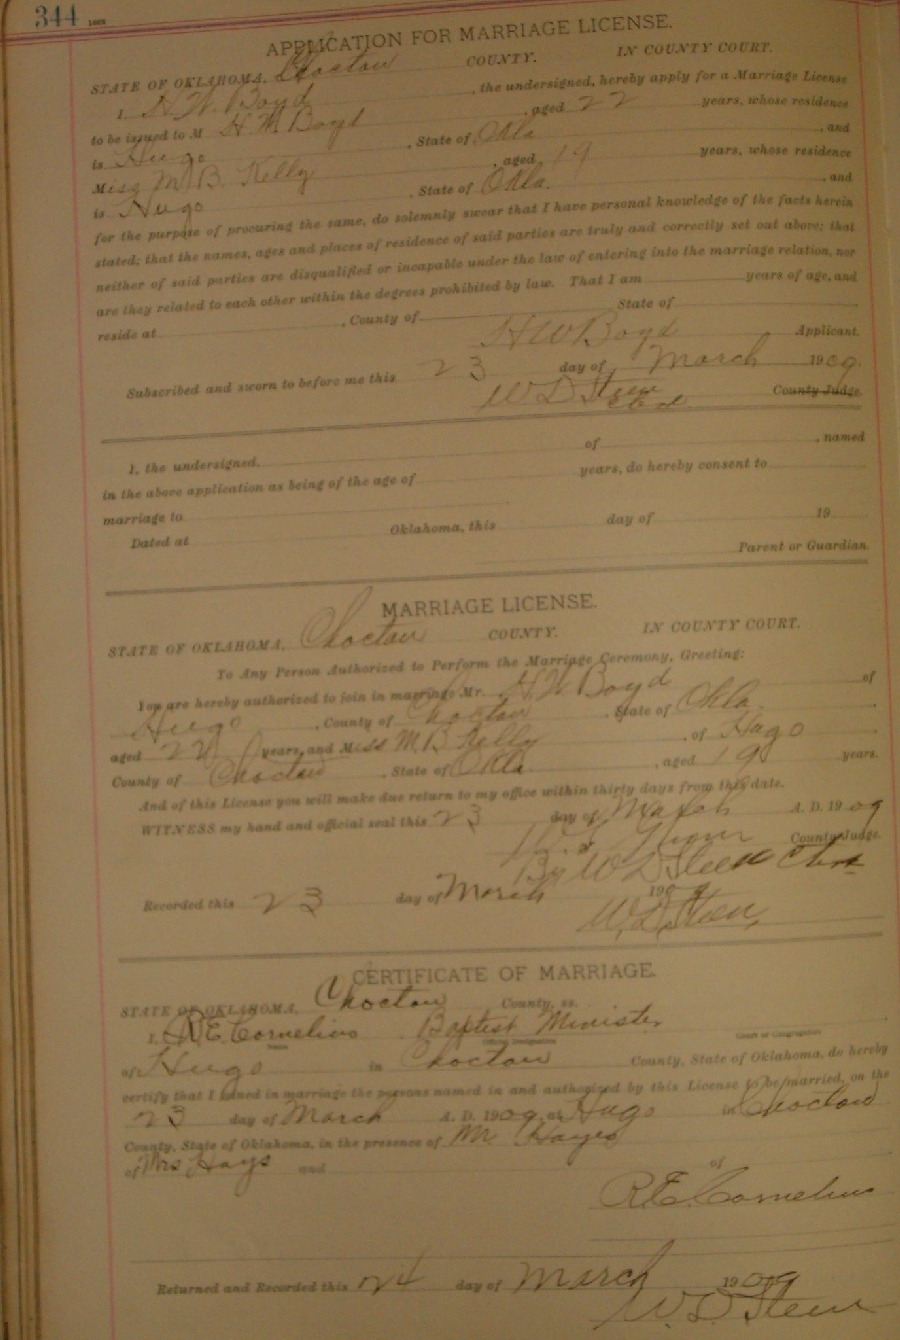 344
APPLICATION FOR MARRIAGE LICENSE.
STATE OF OKLAHOMA, Choctaw COUNTY. IN COUNTY COURT.
I, H. W. Boyd, the undersigned, hereby apply for a Marriage License
to be issued to M H. W. Boyd, aged 22 years, whose residence
is Hugo, State of Okla, and
Miss M. B. Kelly, aged 19 years, whose residence
is Hugo, State of Okla., and
for the purpose of procuring the same, do solemnly swear that I have personal knowledge of the facts herein
stated; that the names, ages and places of residence of said parties are truly and correctly set out above; that
neither of said parties are disqualified or incapable under the law of entering into the marriage relation, nor
are they related to each other within the degrees prohibited by law. That I am years of age, and
reside at , County of State of
H W Boyd Applicant.
Subscribed and sworn to before me this 23 day of March 1909.
W D Steen County Judge.
I, the undersigned, of , named
in the above application as being of the age of years, do hereby consent to
marriage to
Dated at Oklahoma, this day of 19
Parent or Guardian.
MARRIAGE LICENSE.
STATE OF OKLAHOMA, Choctaw COUNTY. IN COUNTY COURT.
To Any Person Authorized to Perform the Marriage Ceremony, Greeting:
You are hereby authorized to join in marriage Mr. H. W. Boyd of
Hugo, County of Choctaw, State of Okla.
aged 22 years, and Miss M. B. Kelly, of Hugo
County of Choctaw, State of Okla., aged 19 years.
And of this License you will make due return to my office within thirty days from this date.
WITNESS my hand and official seal this 23 day of March A. D. 1909
County Judge.
By W D Steen Clerk
Recorded this 23 day of March 1909
W. D. Steen,
CERTIFICATE OF MARRIAGE.
STATE OF OKLAHOMA, Choctaw County, ss.
I, R E Cornelius Baptist Minister
Name Official Designation Court or Congregation
of Hugo in Choctaw County, State of Oklahoma, do hereby
certify that I joined in marriage the persons named in and authorized by this License to be married, on the
23 day of March A. D. 1909, at Hugo in Choctaw
County, State of Oklahoma, in the presence of Mr Hayes
of Mrs Hays and of
R. E. Cornelius
Returned and Recorded this 24 day of March 1909
W. D. Steen